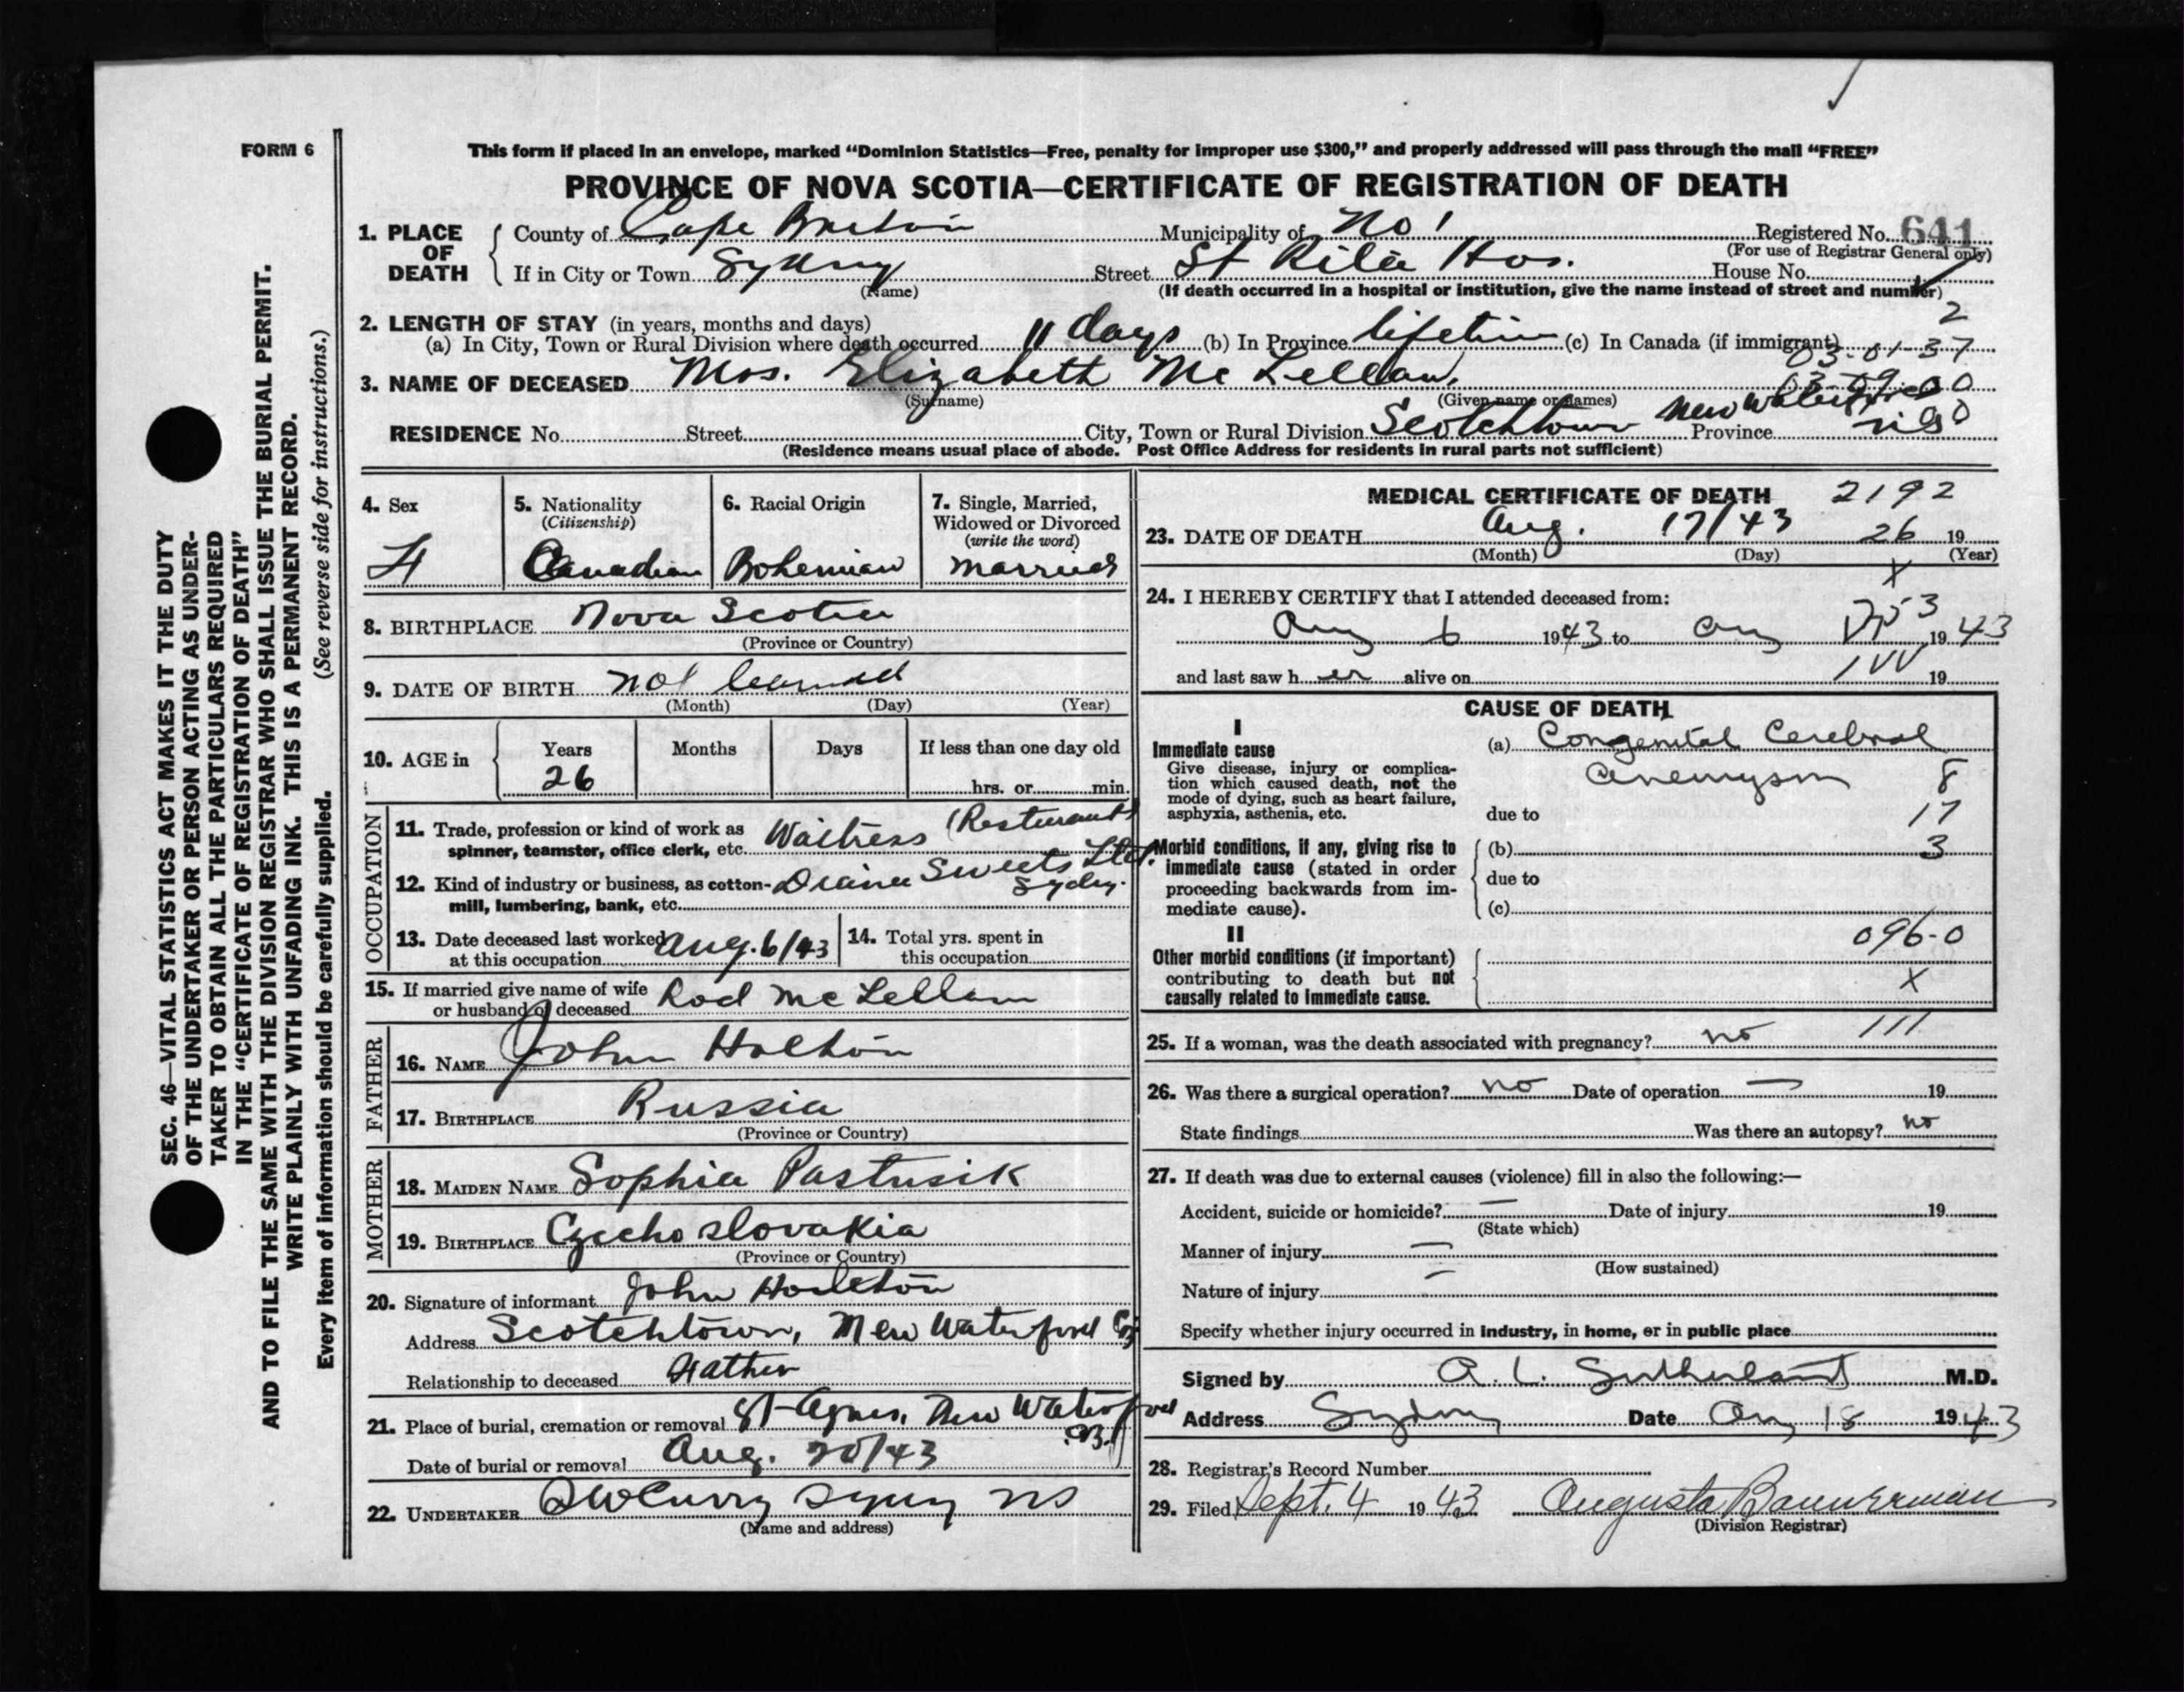 FORM 6
This form if placed in an envelope, marked “Dominion Statistics—Free, penalty for improper use $300,” and properly addressed will pass through the mail “FREE”
PROVINCE OF NOVA SCOTIA—CERTIFICATE OF REGISTRATION OF DEATH
SEC. 46—VITAL STATISTICS ACT MAKES IT THE DUTY
OF THE UNDERTAKER OR PERSON ACTING AS UNDER-
TAKER TO OBTAIN ALL THE PARTICULARS REQUIRED
IN THE “CERTIFICATE OF REGISTRATION OF DEATH”
AND TO FILE THE SAME WITH THE DIVISION REGISTRAR WHO SHALL ISSUE THE BURIAL PERMIT.
WRITE PLAINLY WITH UNFADING INK. THIS IS A PERMANENT RECORD.
Every item of information should be carefully supplied. (See reverse side for instructions.)
1. PLACE OF DEATH
County of Cape Breton Municipality of No 1 Registered No. 641
(For use of Registrar General only)
If in City or Town Sydney Street St Rita Hos. House No.
(Name) (If death occurred in a hospital or institution, give the name instead of street and number)
2. LENGTH OF STAY (in years, months and days) 2
(a) In City, Town or Rural Division where death occurred 11 days (b) In Province lifetime (c) In Canada (if immigrant) 03-01-37
3. NAME OF DECEASED Mrs. Elizabeth Mc Lellan.
(Surname) (Given name or names)
RESIDENCE No. Street City, Town or Rural Division Scotchtown New Waterford Province N.S.
(Residence means usual place of abode. Post Office Address for residents in rural parts not sufficient)
4. Sex
F
5. Nationality
(Citizenship)
Canadian
6. Racial Origin
Bohemian
7. Single, Married,
Widowed or Divorced
(write the word)
married
8. BIRTHPLACE Nova Scotia
(Province or Country)
9. DATE OF BIRTH not learned
(Month) (Day) (Year)
10. AGE in
Years Months Days If less than one day old
26 hrs. or min.
OCCUPATION
11. Trade, profession or kind of work as
spinner, teamster, office clerk, etc. Waitress (Resturant)
12. Kind of industry or business, as cotton-
mill, lumbering, bank, etc. Diana Sweets Ltd. Sydney.
13. Date deceased last worked
at this occupation Aug. 6/43
14. Total yrs. spent in
this occupation
15. If married give name of wife
or husband of deceased Rod McLellan
FATHER
16. NAME John Holton
17. BIRTHPLACE Russia
(Province or Country)
MOTHER
18. MAIDEN NAME Sophia Pastusik
19. BIRTHPLACE Czecho slovakia
(Province or Country)
20. Signature of informant John Houlton
Address Scotchtown, New Waterford CB
Relationship to deceased Father
21. Place of burial, cremation or removal St-Agnes, New Waterford C.B.
Date of burial or removal Aug. 20/43
22. UNDERTAKER Sydney NS
(Name and address)
MEDICAL CERTIFICATE OF DEATH 2192
23. DATE OF DEATH Aug. 17/43 26 19
(Month) (Day) (Year)
X
24. I HEREBY CERTIFY that I attended deceased from:
Aug 6 1943 to Aug 19 43
and last saw her alive on 19
CAUSE OF DEATH
I
Immediate cause
Give disease, injury or complica-
tion which caused death, not the
mode of dying, such as heart failure,
asphyxia, asthenia, etc.
(a) Congenital Cerebral
Aneurysm 8
due to 17
Morbid conditions, if any, giving rise to
immediate cause (stated in order
proceeding backwards from im-
mediate cause).
(b) 3
due to
(c)
II
Other morbid conditions (if important)
contributing to death but not
causally related to immediate cause.
096-0
X
25. If a woman, was the death associated with pregnancy? no 111
26. Was there a surgical operation? no Date of operation — 19
State findings Was there an autopsy? no
27. If death was due to external causes (violence) fill in also the following:—
Accident, suicide or homicide? — Date of injury 19
(State which)
Manner of injury —
(How sustained)
Nature of injury —
Specify whether injury occurred in industry, in home, or in public place
Signed by A. L. Sutherland M.D.
Address Sydney Date Aug 18 1943
28. Registrar's Record Number
29. Filed Sept. 4 1943 Augusta Bannerman
(Division Registrar)